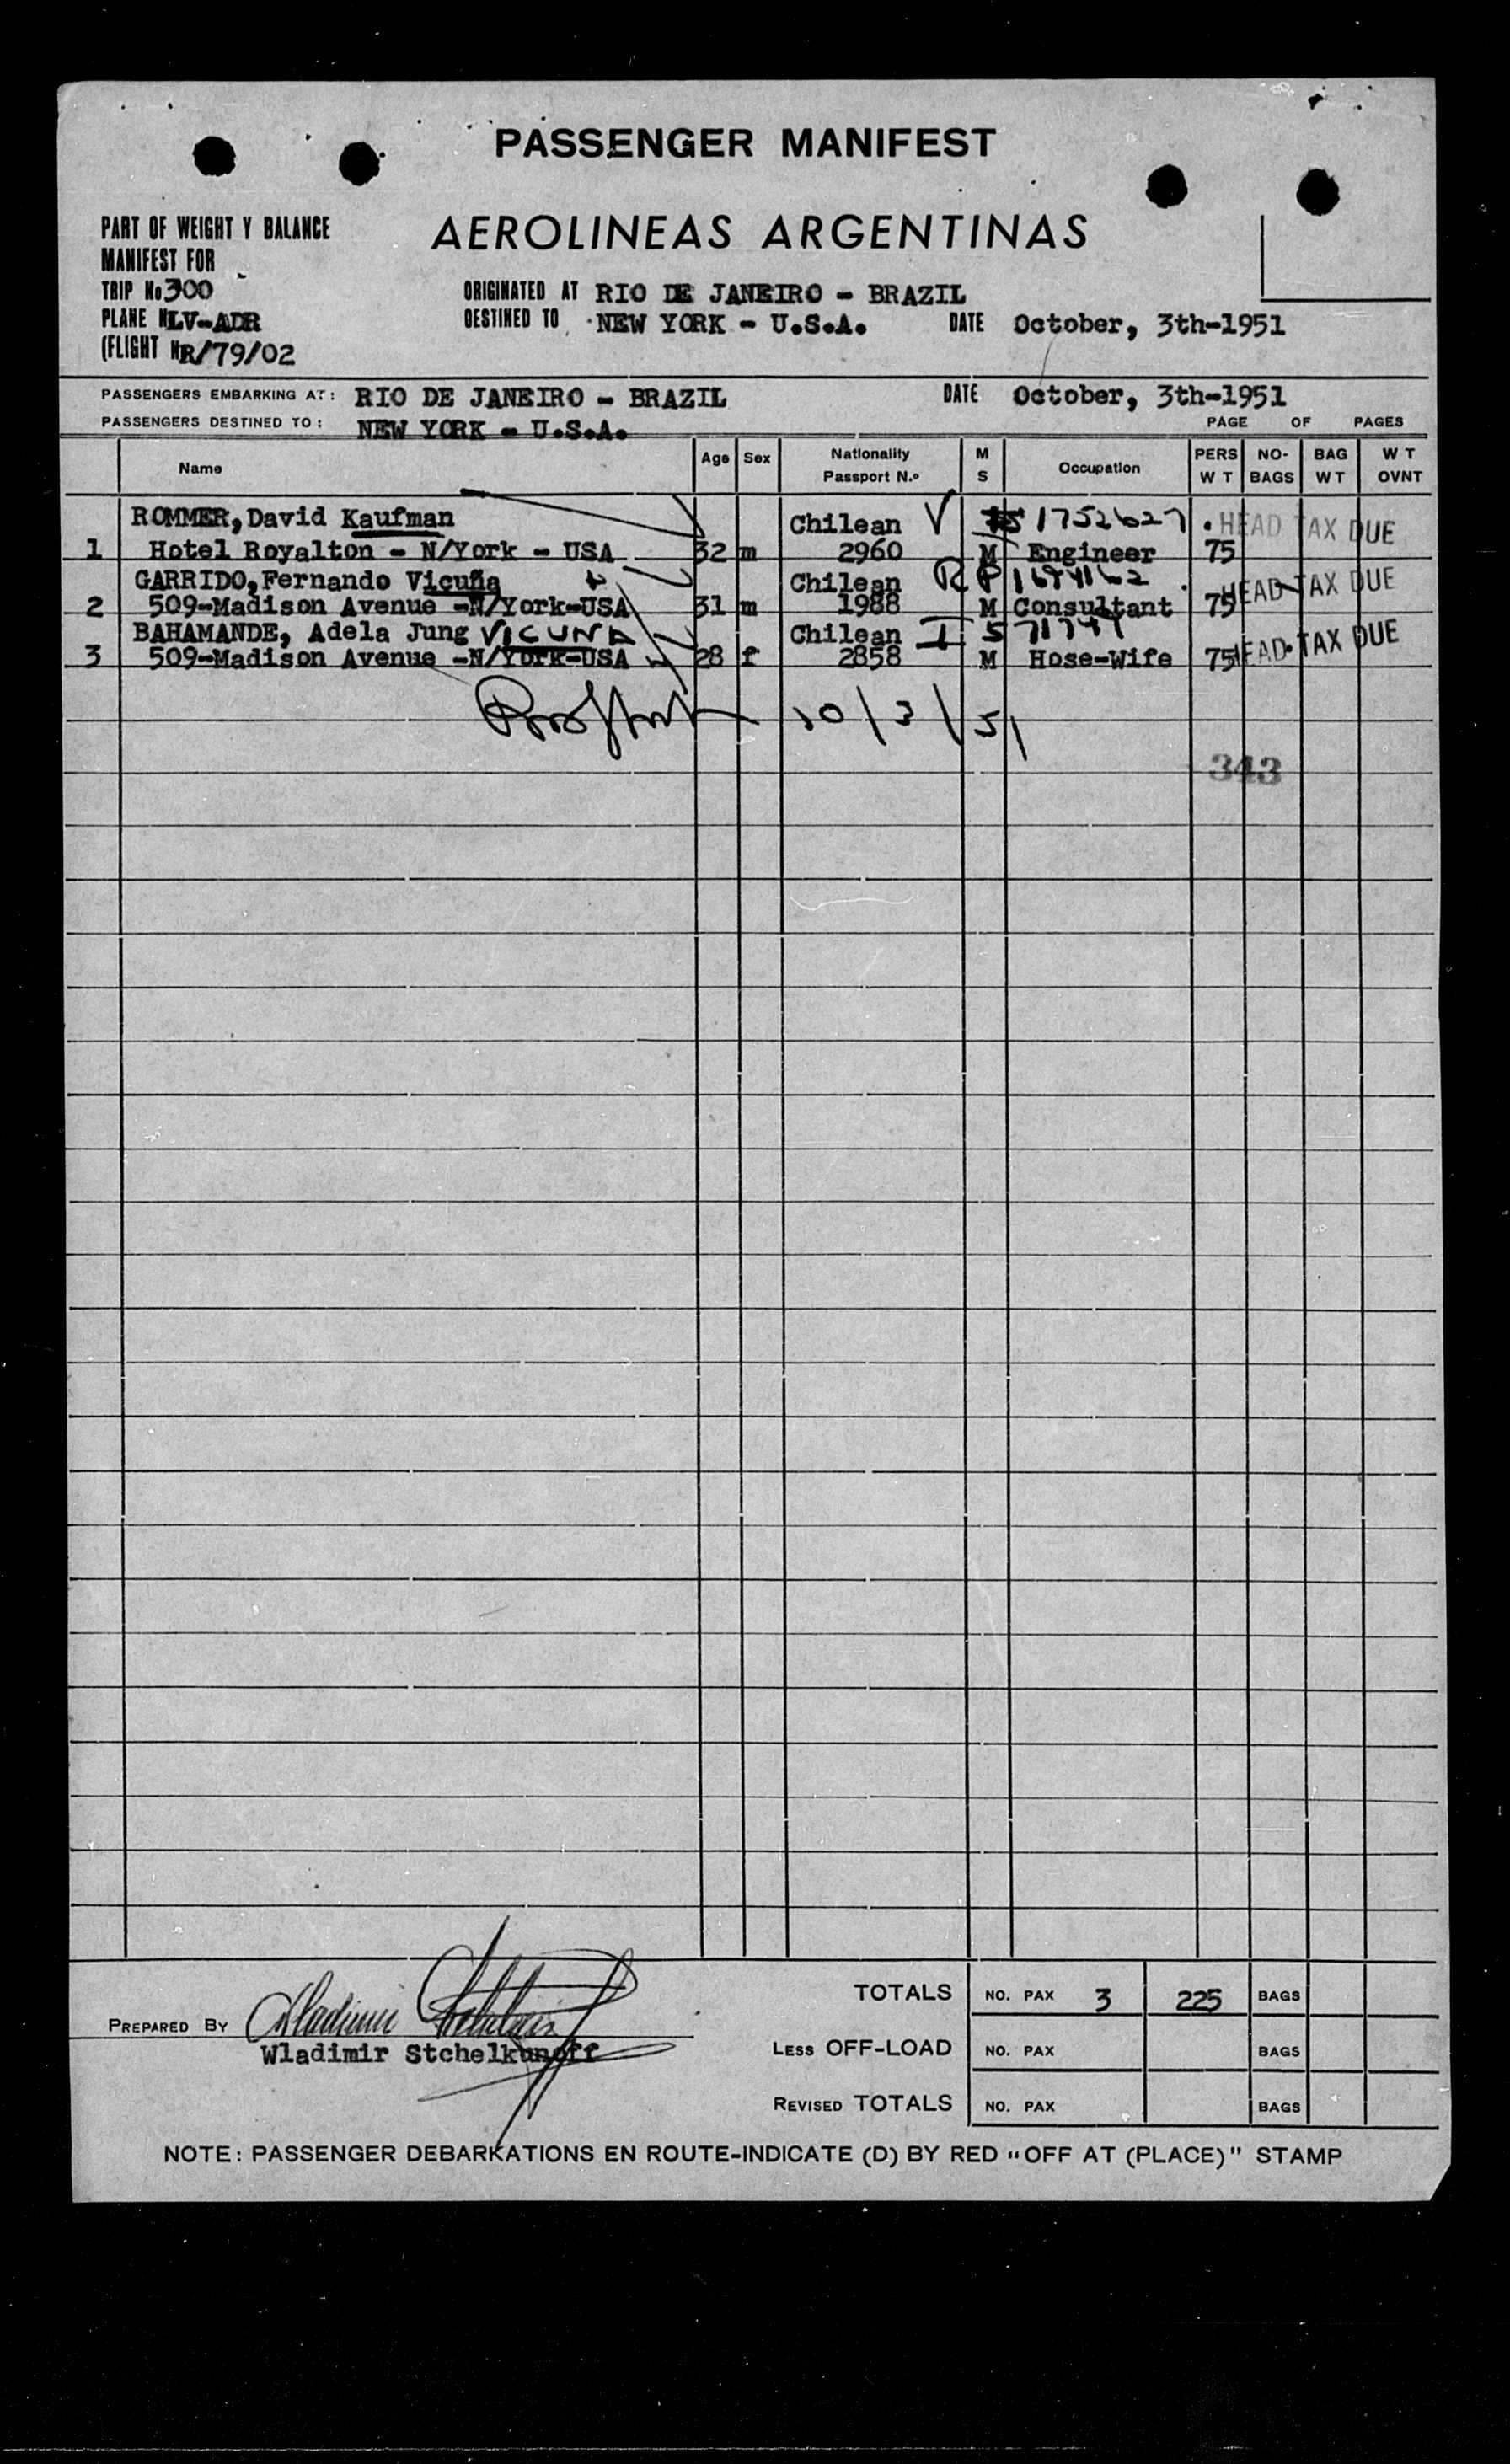 PASSENGER MANIFEST
AEROLINEAS ARGENTINAS
PART OF WEIGHT Y BALANCE
MANIFEST FOR
TRIP No 300
PLANE N LV-ADR
(FLIGHT NR/79/02
ORIGINATED AT RIO DE JANEIRO - BRAZIL
DESTINED TO NEW YORK - U.S.A. DATE October, 3th-1951
PASSENGERS EMBARKING AT: RIO DE JANEIRO - BRAZIL DATE October, 3th-1951
PASSENGERS DESTINED TO: NEW YORK - U.S.A. PAGE OF PAGES
Name Age Sex Nationality Passport N.º M S Occupation PERS W T NO- BAGS BAG W T W T OVNT
ROMMER, David Kaufman Chilean V 1752627 HEAD TAX DUE
1 Hotel Royalton - N/York - USA 32 m 2960 M Engineer 75
GARRIDO, Fernando Vicuña Chilean HEAD TAX DUE
2 509-Madison Avenue -N/York-USA 31 m 1988 M Consultant 75
BAHAMANDE, Adela Jung VICUNA Chilean I HEAD TAX DUE
3 509-Madison Avenue -N/York-USA 28 f 2858 M Hose-Wife 75
10/3/51
343
TOTALS NO. PAX 3 225 BAGS
PREPARED BY
Wladimir Stchelkunoff
LESS OFF-LOAD NO. PAX BAGS
REVISED TOTALS NO. PAX BAGS
NOTE: PASSENGER DEBARKATIONS EN ROUTE-INDICATE (D) BY RED "OFF AT (PLACE)" STAMP